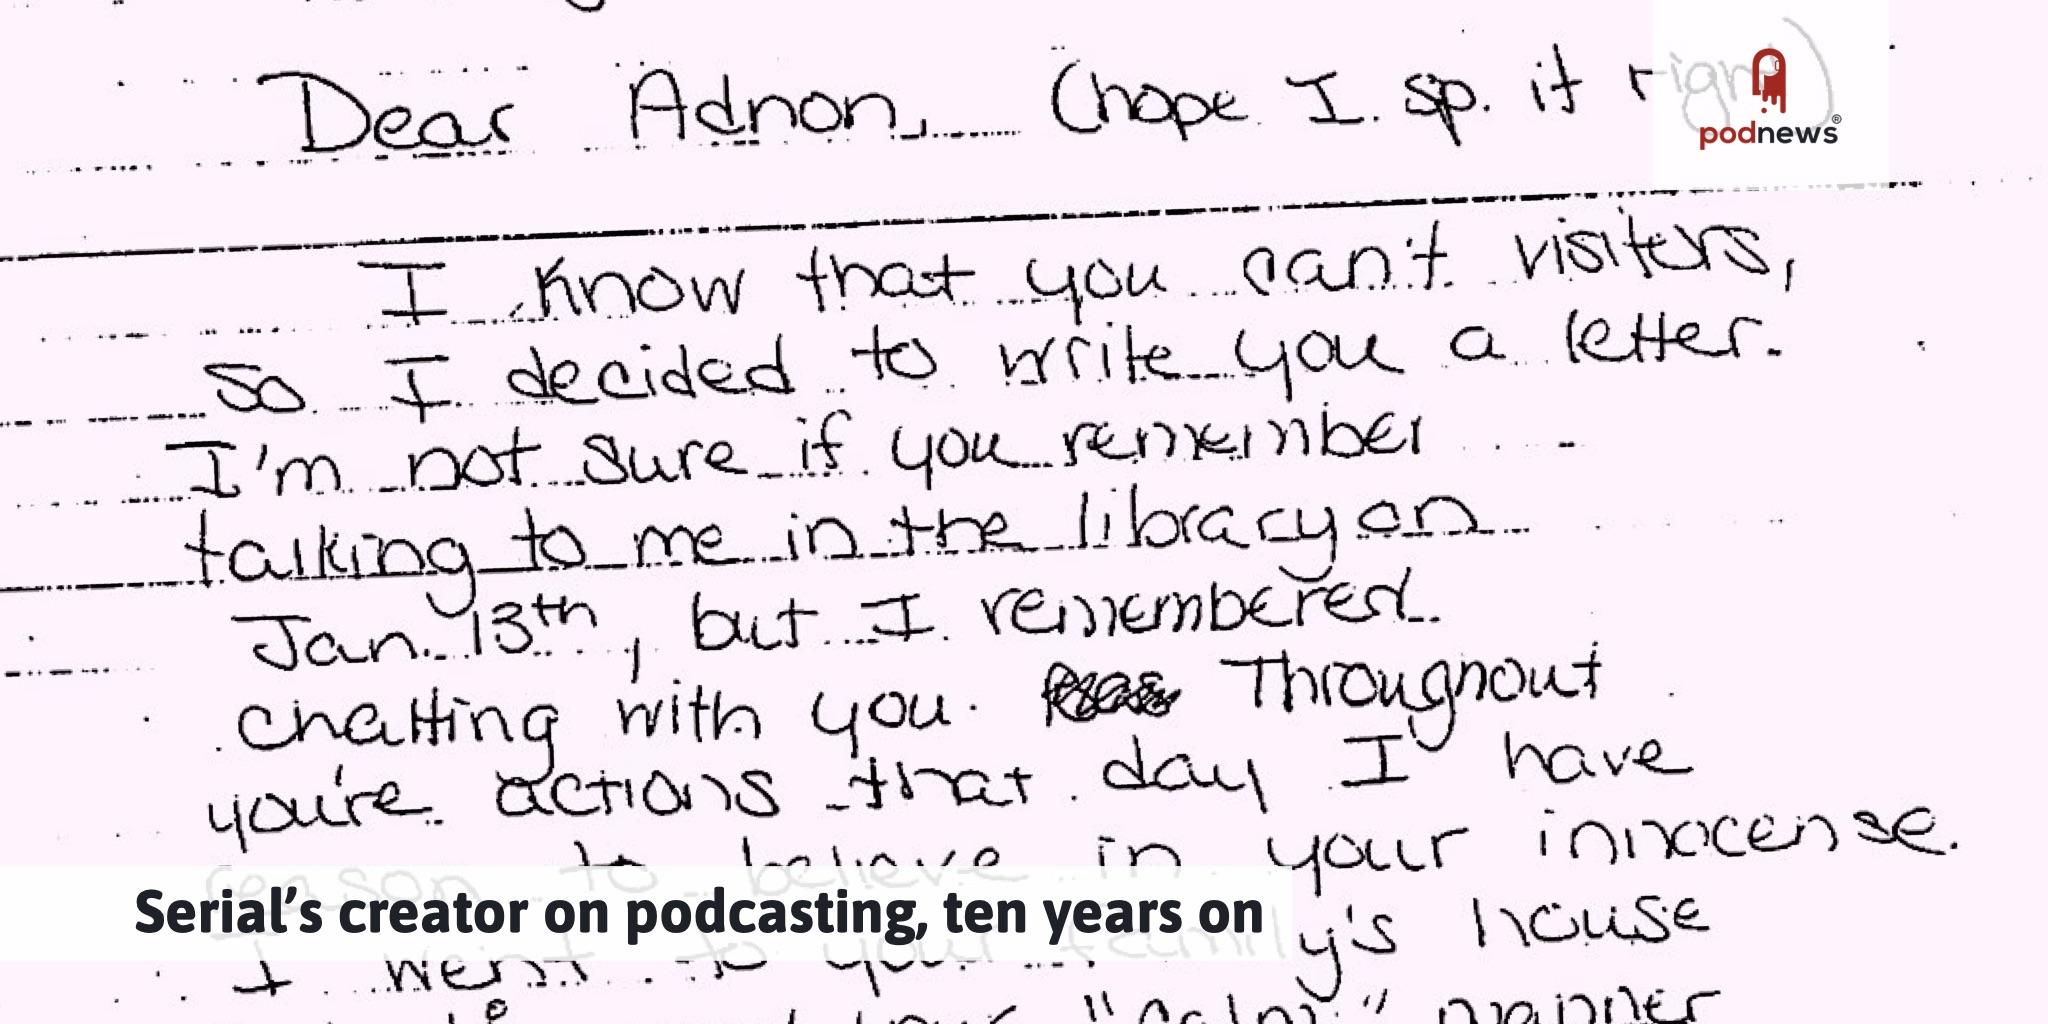 Dear Adnon, (hope I sp. it right)
podnews®
I know that you can't visiters,
so I decided to write you a letter.
I'm not sure if you remember
talking to me in the library on
Jan. 13th, but I remembered
chatting with you. Throughout
you're actions that day I have
reason to believe in your innocense.
I went to your family's house
Serial's creator on podcasting, ten years on
your "calm" manner